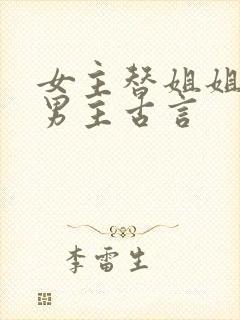 女主替姐姐
男主古言
李雷生